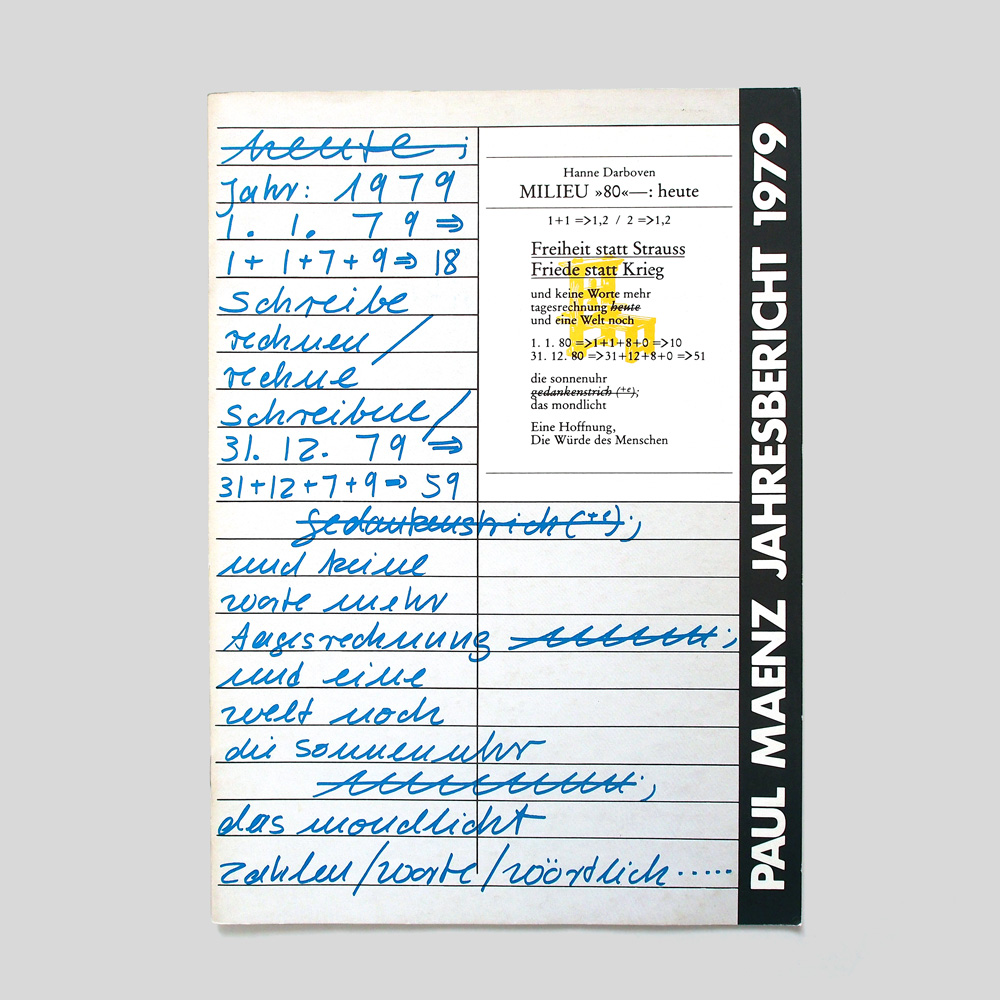 heute;
Jahr: 1979
1. 1. 79 ⇒
1+1+7+9⇒18
Schreibe
rechnen/
rechne
Schreiben/
31. 12. 79 ⇒
31+12+7+9⇒59
gedankenstrich(+e);
und keine
worte mehr
Tagesrechnung
und eine
welt noch
die sonnenuhr
das mondlicht
zahlen/worte/wörtlich.....
Hanne Darboven
MILIEU »80«—: heute
1+1 =>1,2 / 2 =>1,2
Freiheit statt Strauss
Friede statt Krieg
und keine Worte mehr
tagesrechnung heute
und eine Welt noch
1. 1. 80 =>1+1+8+0 =>10
31. 12. 80 =>31+12+8+0 =>51
die sonnenuhr
gedankenstrich (+e);
das mondlicht
Eine Hoffnung,
Die Würde des Menschen
PAUL MAENZ JAHRESBERICHT 1979